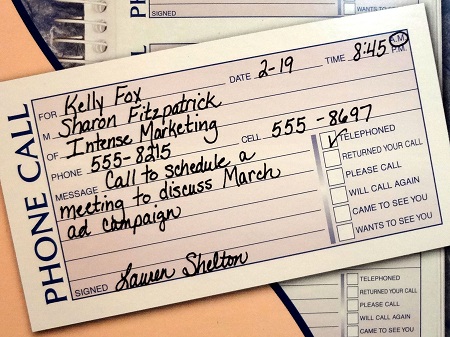 SIGNED
WANTS TO
PHONE CALL
FOR Kelly Fox DATE 2-19 TIME 8:45 A.M. P.M.
M Sharon Fitzpatrick
OF Intense Marketing
PHONE 555-8215 CELL 555-8697
MESSAGE Call to schedule a
meeting to discuss March
ad campaign
SIGNED Lauren Shelton
✓ TELEPHONED
RETURNED YOUR CALL
PLEASE CALL
WILL CALL AGAIN
CAME TO SEE YOU
WANTS TO SEE YOU
TELEPHONED
RETURNED YOUR CALL
PLEASE CALL
WILL CALL AGAIN
CAME TO SEE YOU